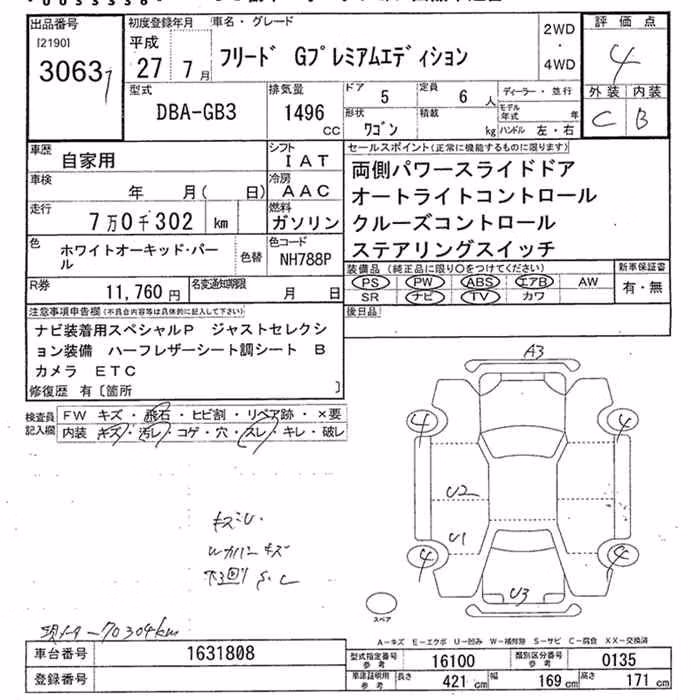 出品番号
[2190]
3063
初度登録年月
平成
27 7月
車名・グレード
フリード Gプレミアムエディション
2WD
・
4WD
評価点
4
外装 内装
C B
型式
DBA-GB3
排気量
1496
CC
ドア 5
定員 6人
形状 ワゴン
積載 kg
ディーラー・並行
モデル年式 年
ハンドル 左・右
車歴
自家用
シフト
IAT
車検
年 月( 日)
冷房
AAC
走行
7万0千302 km
燃料
ガソリン
色
ホワイトオーキッド・パール
色替
色コード
NH788P
R券
11,760円
名変通知期限
月 日
セールスポイント(正常に機能するものに限ります)
両側パワースライドドア
オートライトコントロール
クルーズコントロール
ステアリングスイッチ
装備品(純正品に限り○をつけてください)
PS PW ABS エアB AW
SR ナビ TV カワ
新車保証書
有・無
後日品
注意事項申告欄(不具合内容は具体的に記入して下さい)
ナビ装着用スペシャルP ジャストセレクシ
ョン装備 ハーフレザーシート調シート B
カメラ ETC
修復歴 有[箇所 ]
検査員
記入欄
FW キズ・飛石・ヒビ割・リペア跡・×要
内装 キズ・汚レ・コゲ・穴・スレ・キレ・破レ
A3
4 4
U2
U1
4 4
U3
キズU.
Wカバーキズ
下回りS.C
スペア
70304km
A-キズ E-エクボ U-凹み W-補修跡 S-サビ C-腐食 XX-交換済
車台番号
1631808
登録番号
型式指定番号
参考
16100
類別区分番号
参考
0135
車庫証明用
参考
長さ 421cm
幅 169cm
高さ 171cm